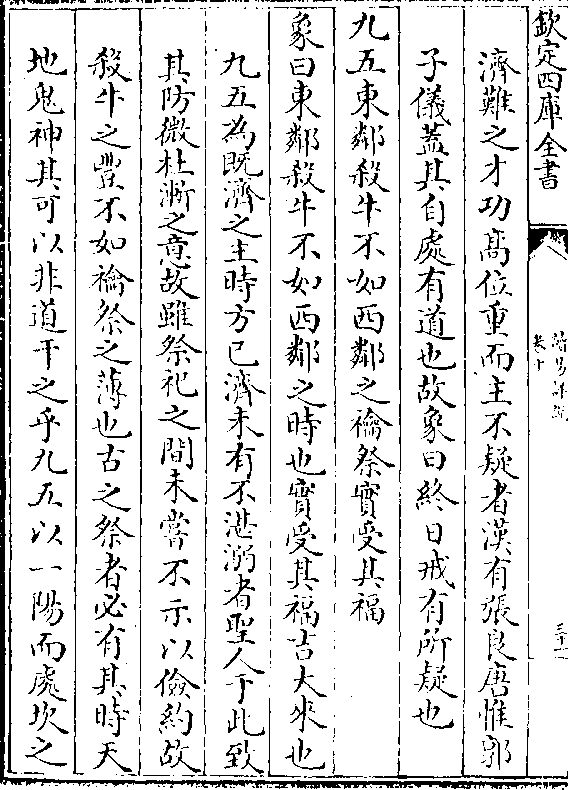 欽定四庫全書
讀易詳說
卷十
三十一
濟難之才功髙位重而主不疑者漢有張良唐惟郭
子儀蓋其自處有道也故象曰終日戒有所疑也
九五東鄰殺牛不如西鄰之禴祭實受其福
象曰東鄰殺牛不如西鄰之時也實受其福吉大來也
九五為既濟之主時方已濟未有不湛溺者聖人于此致
其防微杜漸之意故雖祭祀之間未嘗不示以儉約故
殺牛之豐不如禴祭之薄也古之祭者必有其時天
地鬼神其可以非道干之乎九五以一陽而處坎之